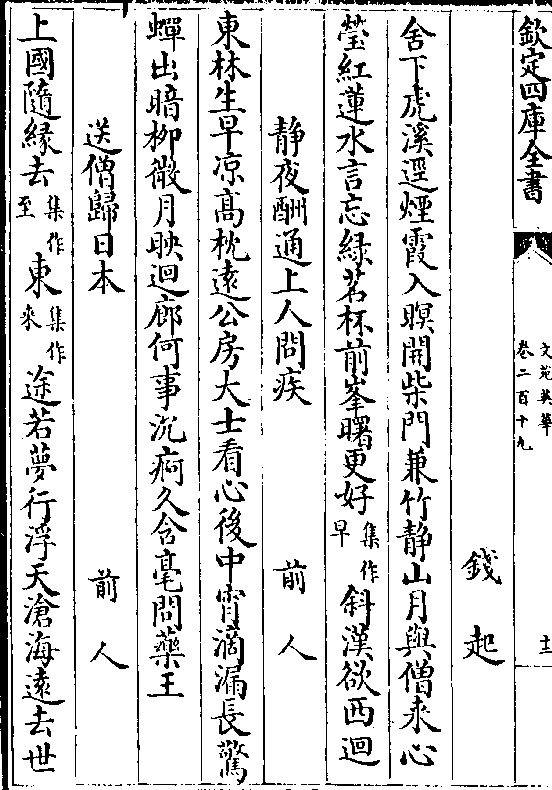 欽定四庫全書
文苑英華
卷二百十九
十
錢起
舍下虎溪逕煙霞入暝開柴門兼竹静山月與僧来心
瑩紅蓮水言忘緑茗杯前峯曙更好集作早斜漢欲西迴
静夜酬通上人問疾　前人
東林生早凉髙枕逺公房大士看心後中宵滴漏長驚
蟬出暗柳微月映迴廊何事沉痾久含毫問藥王
送僧歸日本　前人
上國隨緣去集作至東集作來途若夢行浮天滄海逺去世